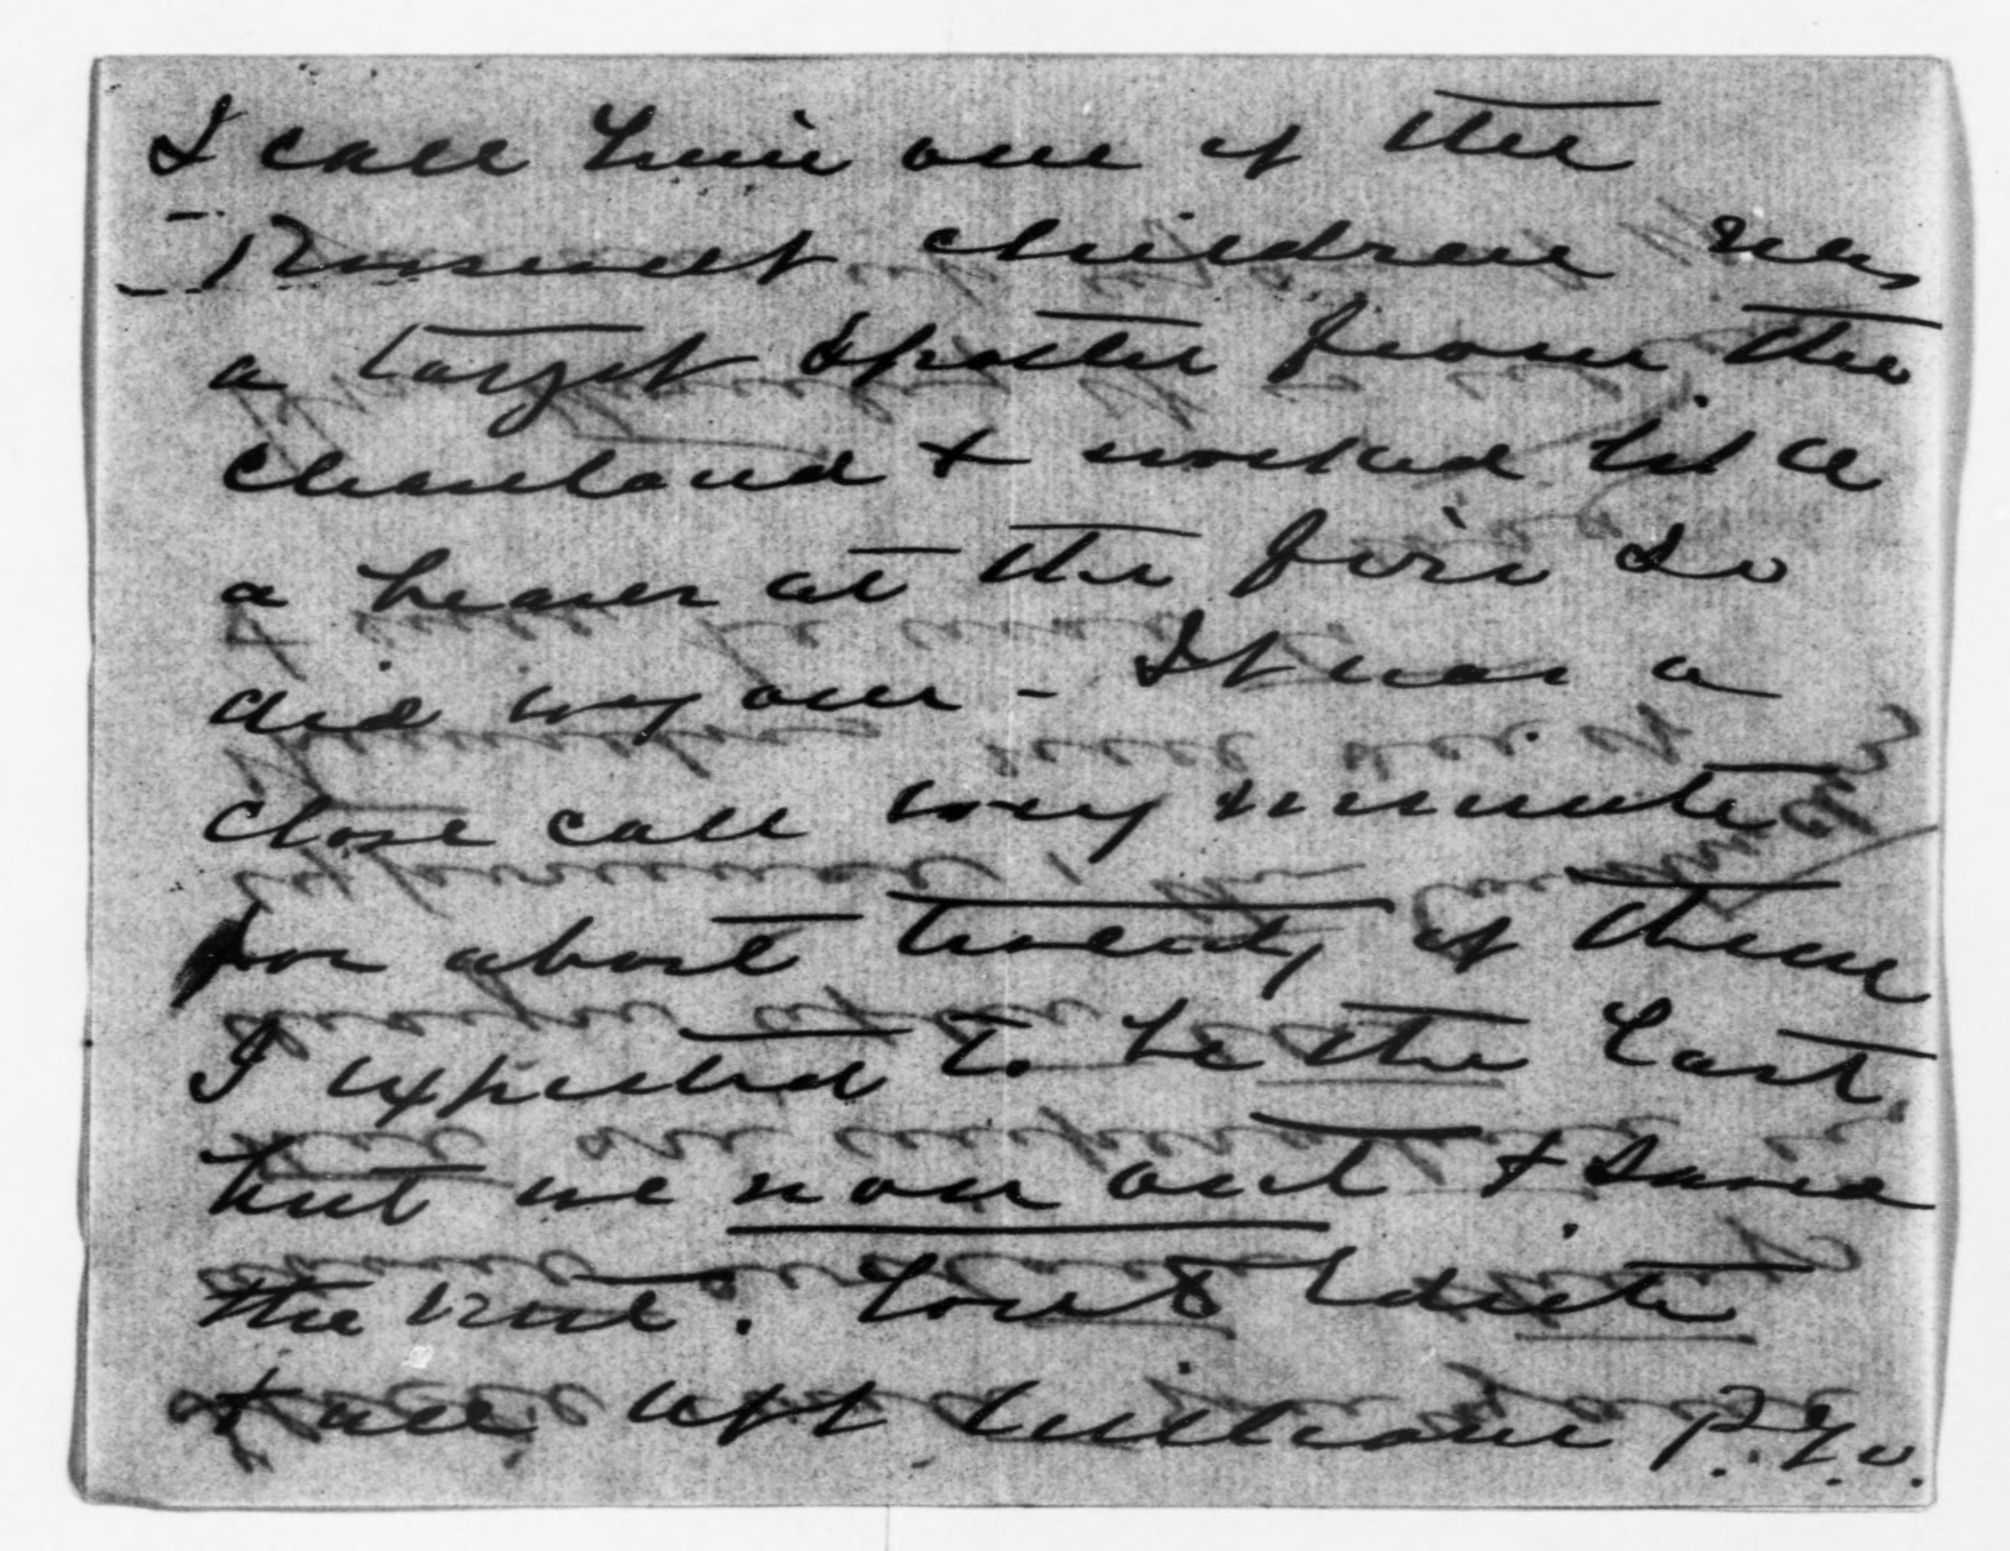 I call him one of the
Roosevelt children
a target Spotter from the
Cleveland & worked like
a beaver at the fire So
did my own - It was a
close call very minute
for about twenty of them
I expected to be the last.
but we now out & saved
the rest. Love &
& all